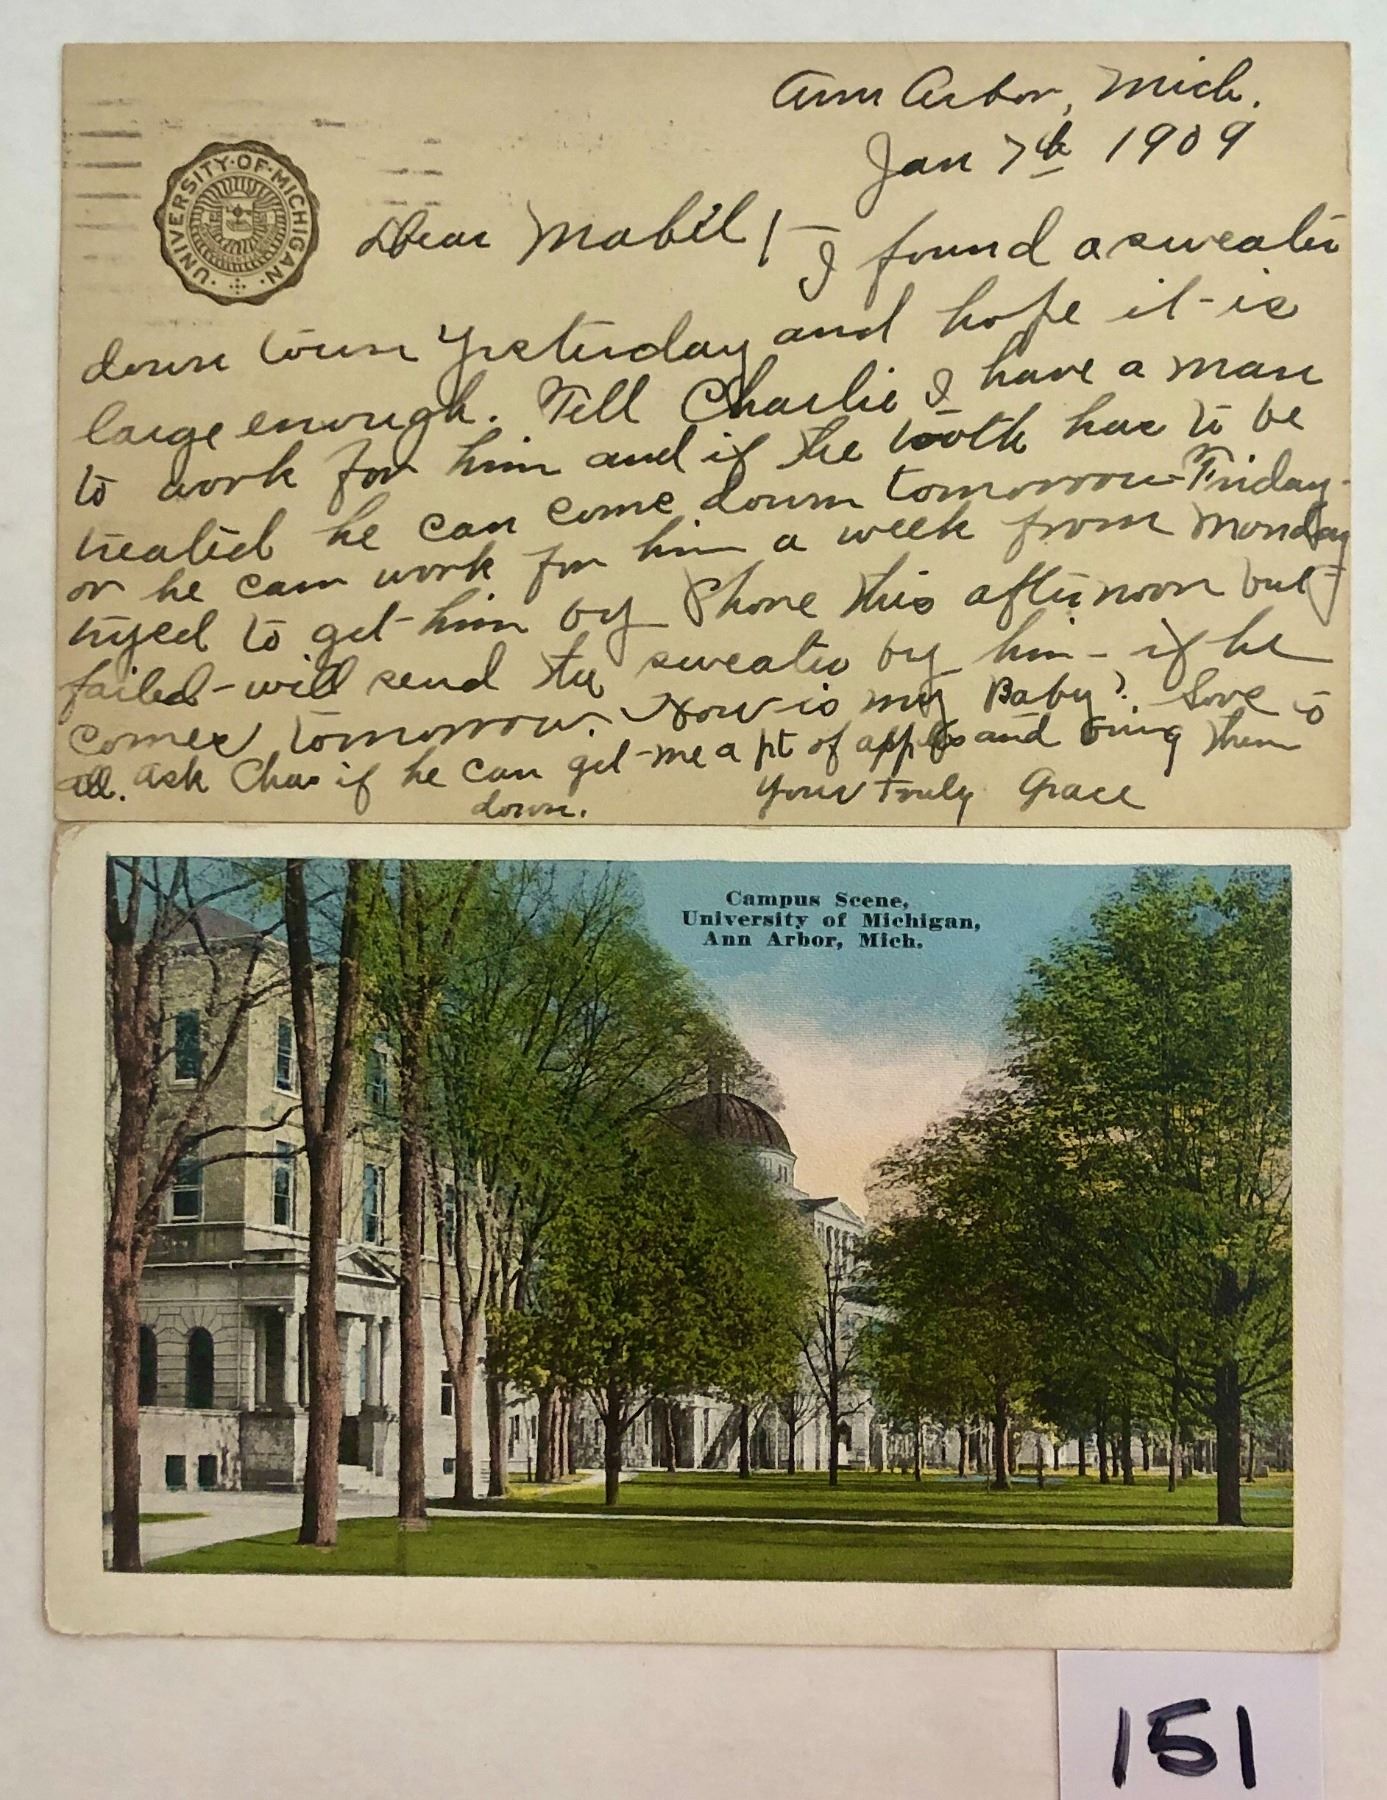 Ann Arbor, Mich.
Jan 7th 1909
UNIVERSITY·OF·MICHIGAN
Dear Mabel!- I found a sweater
down town Yesterday and hope it is
large enough. Tell Charlie I have a man
to work for him and if the tooth has to be
treated he can come down tomorrow-Friday-
or he can work for him a week from Monday
tryed to get him by Phone this afternoon but
failed-will send the sweater by him- if he
comes tomorrow. How is my Baby? Love to
all. Ask Chas if he can get me a pt of apples and bring them
down. Yours truly Grace
Campus Scene,
University of Michigan,
Ann Arbor, Mich.
151